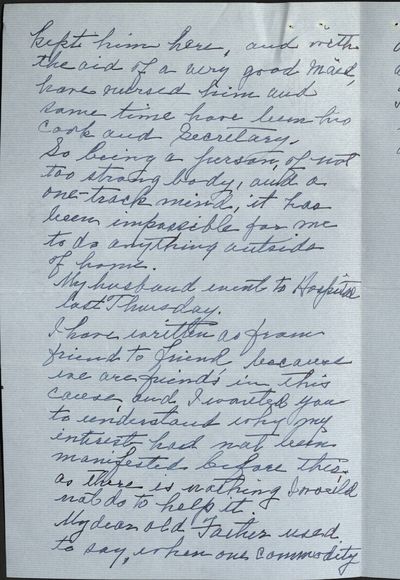 kept him here, and with
the aid of a very good maid,
have nursed him and
same time have been his
cook and secretary.
So being a person, of not
too strong body, and a
one-track mind, it has
been impossible for me
to do anything outside
of home.
My husband went to Hospital
last Thursday.
I have written as from
friend to friend, because
we are friends in this
cause, and I wanted you
to understand why my
interest had not been
manifested before this,
as there is nothing I would
not do to help it.
My dear old Father used
to say, when one commodity